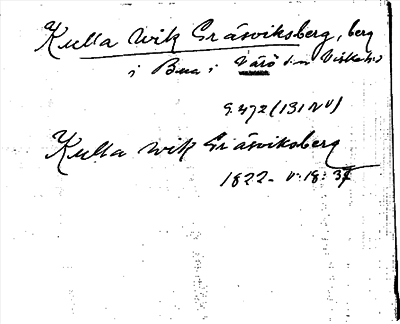 Kulla Wik Gräsviksberg, berg
i Bua i Värö sn Viske hd
G. 472 (131 NV)
Kulla Wik Gräsviksberg
1822- V: 18: 37